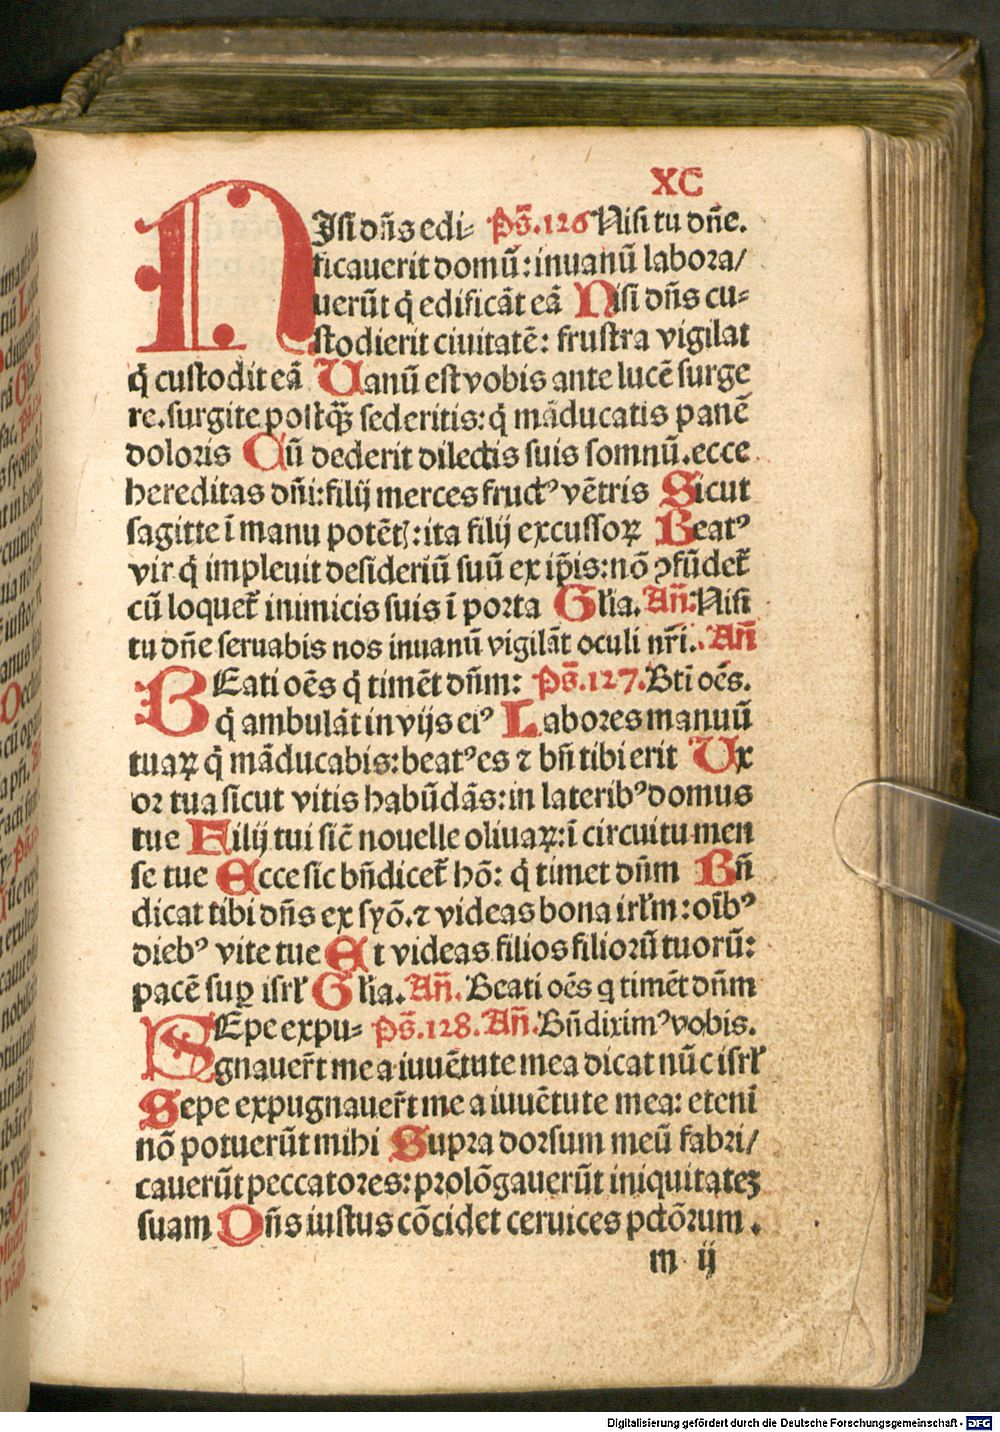 XC
NIsi dn̄s edi⸗ Ps̄.126 Nisi tu dn̄e.
ficauerit domū: inuanū labora/
uerūt q̇ edificāt eā Nisi dn̄s cu⸗
stodierit ciuitatē: frustra vigilat
q̇ custodit eā Uanū est vobis ante lucē surge
re. surgite postqꝫ̄ sederitis: q̇ māducatis panē
doloris Cū dederit dilectis suis somnū. ecce
hereditas dn̄i: filij merces fructꝰ vētris Sicut
sagitte ī manu potētꝭ: ita filij excussoꝝ Beatꝰ
vir q̇ impleuit desideriū suū ex ip̄is: nō ꝯfūdet̄
cū loquet̄ inimicis suis ī porta Gl̄ia. An̄. Nisi
tu dn̄e seruabis nos inuanū vigilāt oculi nr̄i. An̄
BEati oēs q̇ timēt dn̄m: Ps̄.127. Bt̄i oēs.
q̇ ambulāt in vijs eiꝰ Labores manuū
tuaꝝ q̇ māducabis: beatꝰ es ⁊ bn̄ tibi erit Ux
or tua sicut vitis habūdās: in lateribꝰ domus
tue Filij tui sic̄ nouelle oliuaꝝ: ī circuitu men
se tue Ecce sic bn̄dicet̄ hō: q̇ timet dn̄m Bn̄
dicat tibi dn̄s ex syō. ⁊ videas bona irl̄m: oīb̄ꝰ
diebꝰ vite tue Et videas filios filiorū tuorū:
pacē suꝑ isrl̄ Gl̄ia. An̄. Beati oēs q timēt dn̄m
SEpe expu⸗ Ps̄.128. An̄. Bn̄diximꝰ vobis.
gnauer̄t me a iuuētute mea dicat nūc isrl̄
Sepe expugnauer̄t me a iuuētute mea: etenī
nō potuerūt mihi Supra dorsum meū fabri/
cauerūt peccatores: prolōgauerūt iniquitateꝫ
suam Dn̄s iustus cōcidet ceruices pctōrum.
m ij
Digitalisierung gefördert durch die Deutsche Forschungsgemeinschaft - DFG